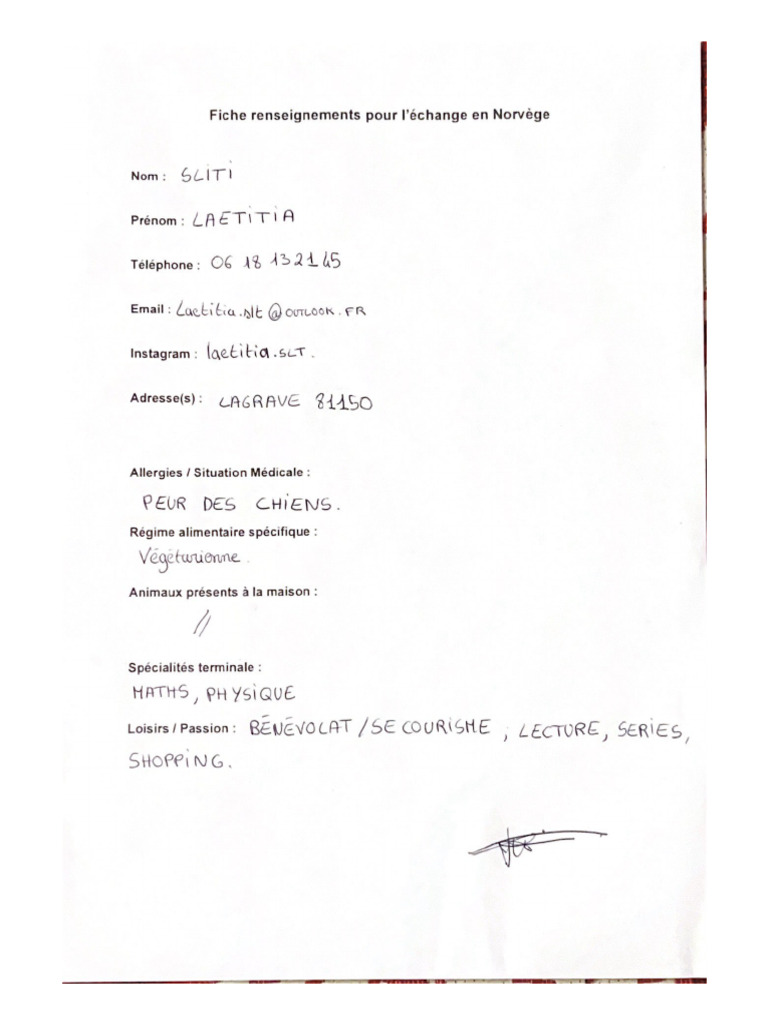 Fiche renseignements pour l'échange en Norvège
Nom : SLITI
Prénom : LAETITIA
Téléphone : 06 18 13 21 45
Email : Laetitia.slt @OUTLOOK.FR
Instagram : laetitia.SLT.
Adresse(s) : LAGRAVE 81150
Allergies / Situation Médicale :
PEUR DES CHIENS.
Régime alimentaire spécifique :
Végéturionne.
Animaux présents à la maison :
//
Spécialités terminale :
MATHS, PHYSIQUE
Loisirs / Passion : BÉNÉVOLAT / SECOURISME, LECTURE, SERIES,
SHOPPING.